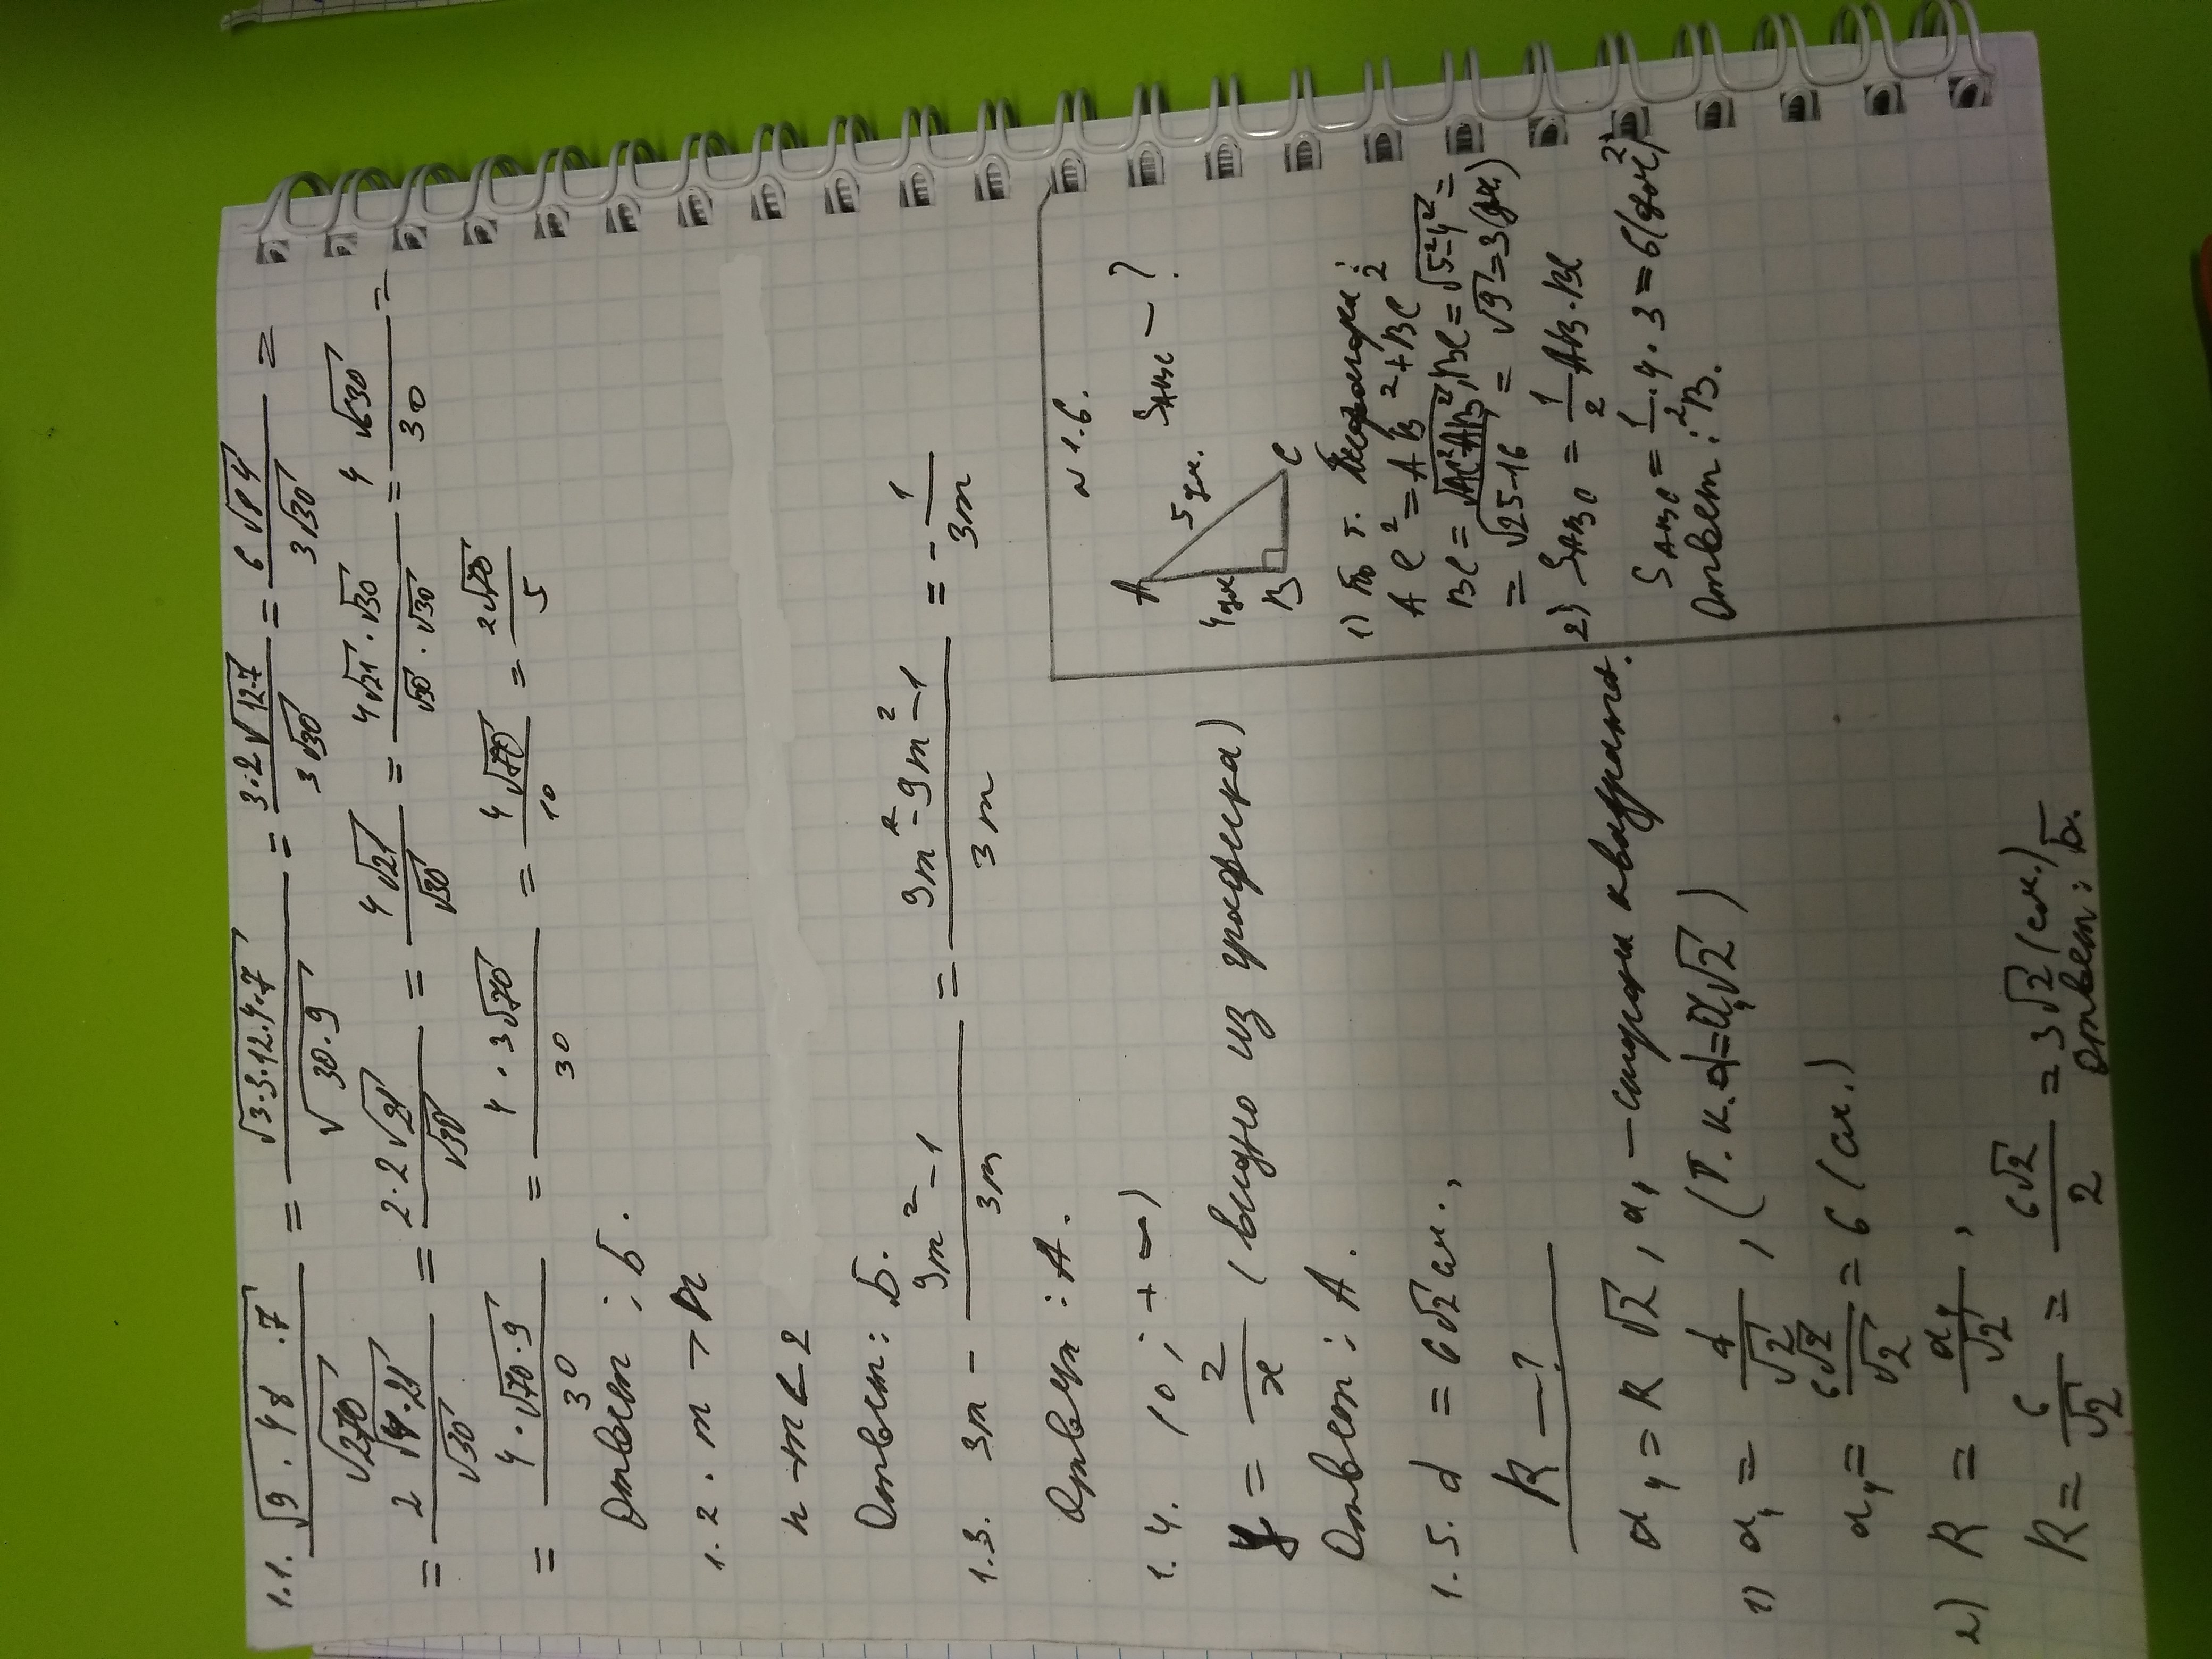 1.1. √9 · 48 · 7 / √270 = √3·3·12·4·7 / √30·9 = 3·2√12·7 / 3√30 = 6√84 / 3√30 =
= 2√4·21 / √30 = 2·2√21 / √30 = 4√21 / √30 = 4√21 · √30 / √30 · √30 = 4√630 / 30 =
= 4·√70·9 / 30 = 4·3√70 / 30 = 4√70 / 10 = 2√70 / 5
Ответ: б.
1.2. m > n
n - m < 2
Ответ: Б.
1.3. 3m - 9m² - 1 / 3m = 9m² - 9m² - 1 / 3m = - 1 / 3m
Ответ: А.
1.4. (0; +∞)
y = 2 / x (видно из графика)
Ответ: А.
1.5. d = 6√2 см.,
R - ?
a₄ = R√2, a₄ - сторона квадрата.
1) a₄ = d / √2, (т.к. d = a₄√2)
a₄ = 6√2 / √2 = 6 (см.)
2) R = a₄ / √2,
R = 6 / √2 = 6√2 / 2 = 3√2 (см.)
Ответ: Б.
N 1.6.
A
5 дм.
S ABC - ?
4 дм
B
C
1) По т. Пифагора:
AC² = AB² + BC²
BC = √AC² - AB², BC = √5² - 4² =
= √25-16 = √9 = 3 (дм)
2) S ABC = 1/2 AB·BC
S ABC = 1/2 · 4 · 3 = 6 (дм²)
Ответ: В.